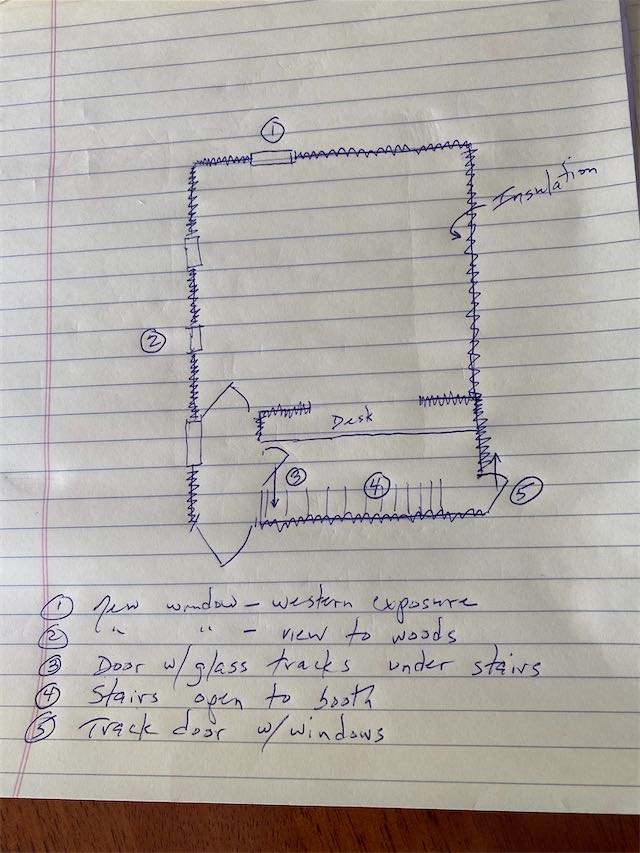 ①
Insulation
②
Desk
③
④
⑤
① New window - western exposure
② " " - view to woods
③ Door w/glass tracks under stairs
④ Stairs open to booth
⑤ Track door w/windows